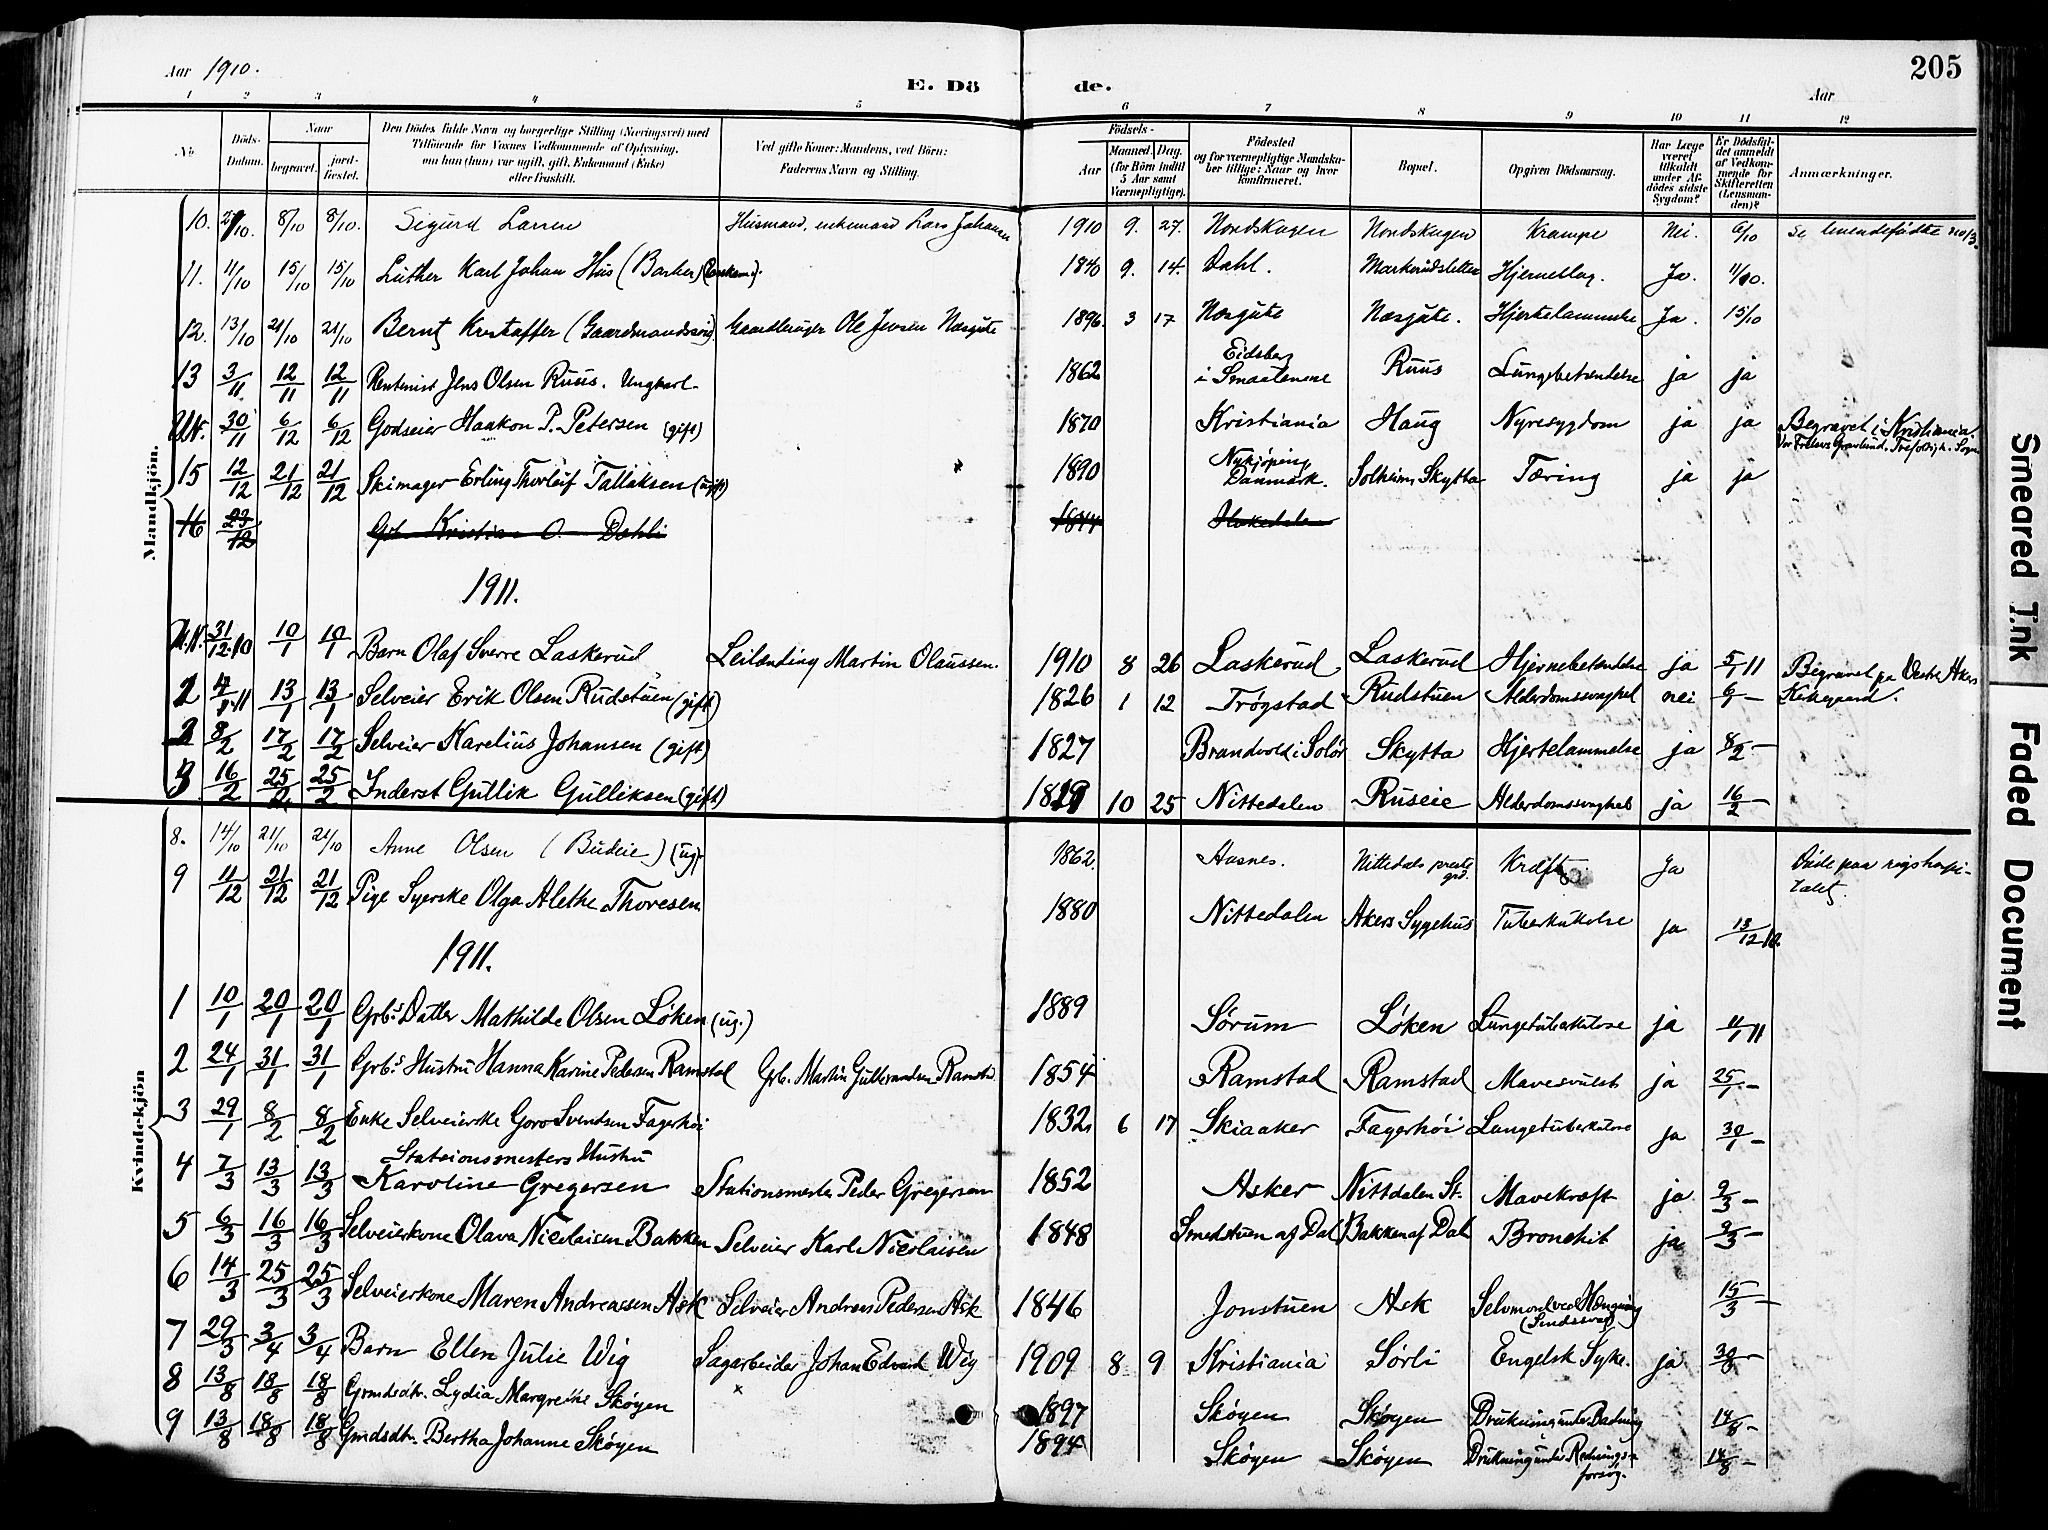 Aar 1910. E. Dö de. Aar 205
1 2 3 4 5 6 7 8 9 10 11 12
No. Döds-Datum. Naar begravet. jord-fæstet. Den Dödes fulde Navn og borgerlige Stilling (Næringsvei) med Tilföiende for Voxnes Vedkommende af Oplysning, om han (hun) var ugift, gift, Enkemand (Enke) eller fraskilt. Ved gifte Koner: Mandens, ved Börn: Faderens Navn og Stilling. Födsels- Aar Maaned. Dag. (for Börn indtil 5 Aar samt Værnepligtige). Födested og for værnepligtige Mandskaber tillige: Naar og hvor konfirmeret. Bopæl. Opgiven Dödsaarsag. Har Læge været tilkaldt under Afdödes sidste Sygdom? Er Dödsfaldet anmeldt af Vedkommende for Skifteretten (Lensmanden)? Anmærkninger.
Mandkjön.
10. 27/10. 8/10 8/10. Sigurd Larsen Husmand, enkemand Lars Johansen 1910 9. 27. Nordskogen Nordskogen Krampe Nei. 6/10 Se levendefødte no 13.
11. 11/10 15/10 15/10 Luther Karl Johan Hus (Barber) 1840 9. 14. Dahl. Markerudsletten Hjerneslag. Ja. 11/10.
12. 13/10 21/10 21/10 Bernt Kristoffer (Gaardmandssøn). Gaardbruger Ole Jensen Næsgute 1896. 3 17 Næsgute Næsgute. Hjertelammelse Ja. 15/10
13 3/11. 12/11 12/11 Rentenist Jens Olsen Ruus. Ungkarl. 1862 Eidsberg i Smaalenene Ruus Lungebetændelse ja ja
UN. 30/11 6/12 6/12 Godseier Haakon P. Petersen (gift) 1870 Kristiania Haug Nyresygdom ja ja Begravet i Kristiania
Vor Frelsers Gravlund. Trefoldigh. Sogn
15 12/12 21/12 21/12 Skimager Erling Thorleif Tallaksen (ugift) 1890 Nykjøping Danmark. Solheim Skytta Tæring ja ja
16 23/12 Grb. Kristian O. Dahli 1844 Hakedalen
1911.
U.N. 31/12.10 10/1 10/1 Barn Olaf Sverre Laskerud Leilænding Martin Olaussen. 1910 8 26 Laskerud Laskerud Hjernebetændelse ja 5/1 11 Begravet paa Vestre Akers
2 4/1.11 13/1 13/1 Selveier Erik Olsen Rudstuen (gift) 1826 1 12 Trøgstad Rudstuen Alderdomssvaghet nei 6/1 — Kirkegaard.
2 8/2 17/2 17/2 Selveier Karelius Johansen (gift) 1827 Brandvold i Solør Skytta Hjertelammelse ja 8/2 —
3 16/2 25/2 25/2 Inderst Gullik Gulliksen (gift) 10 25 Nittedalen Ruseie Alderdomssvaghet ja 16/2 —
Kvindekjön
8. 14/10 21/10 21/10 Anne Olsen (Budeie) (ug). 1862. Aasnes. Nittedals prestegrd. Kræft Ja Døde paa rigshospi-
talet.
9 11/12 21/12 21/12 Pige Syerske Olga Alethe Thoresen 1880 Nittedalen Akers Sygehus Tuberkulose ja 13/12 10.
1911.
1 10/1 20/1 20/1 Grb.s Datter Mathilde Olsen Løken (ug.) 1889 Sørum Løken Lungetuberkulose ja 11/1 11
2 24/1 31/1 31/1 Grb.s Hustru Hanna Karine Pedersen Ramstad Grb. Martin Gulbrandsen Ramstad 1854 Ramstad Ramstad Mavesvulst ja 25/1 —
3 29/1 8/2 8/2 Enke Selveierske Goro Svendsen Fagerhøi 1832 6 17 Skiaaker Fagerhøi Lungetuberkulose ja 30/1 —
4 7/3 13/3 13/3 Stationsmesters Hustru
Karoline Gregersen Stationsmester Peder Gregersen 1852 Asker Nittdalen St. Mavekræft ja 9/3 —
5 6/3 16/3 16/3 Selveierkone Olava Nicolaisen Bakken Selveier Karl Nicolaisen 1848 Smedstuen af Dal Bakken af Dal Bronchit ja 9/3 —
6 14/3 25/3 25/3 Selveierkone Maren Andreassen Ask Selveier Andreas Pedersen Ask 1846 Jonstuen Ask Selvmord ved Hængning (Sindssvag) 15/3 —
7 29/3 3/4 3/4 Barn Ellen Julie Wig Sagarbeider Johan Edvard Wig 1909 8 9 Kristiania Sørli Engelsk Syke. ja 30/8 —
8 13/8 18/8 18/8 Grmdsdtr. Lydia Margrethe Skøyen 1897 Skøyen Skøyen Drukning under Badning 14/8 —
9 13/8 18/8 18/8 Grmdsdtr. Bertha Johanne Skøyen 1894 Skøyen Skøyen Drukning under Rednings-
forsøg. 14/8 —
Smeared Ink
Faded Document